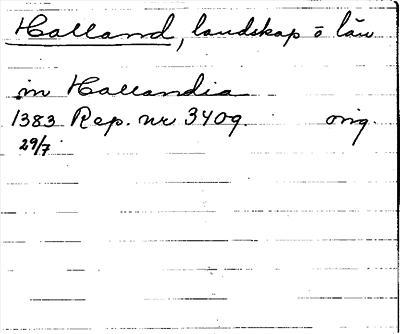 Halland, landskap ō län
in Hallandia
1383 Rep. nr 3409. orig.
29/7